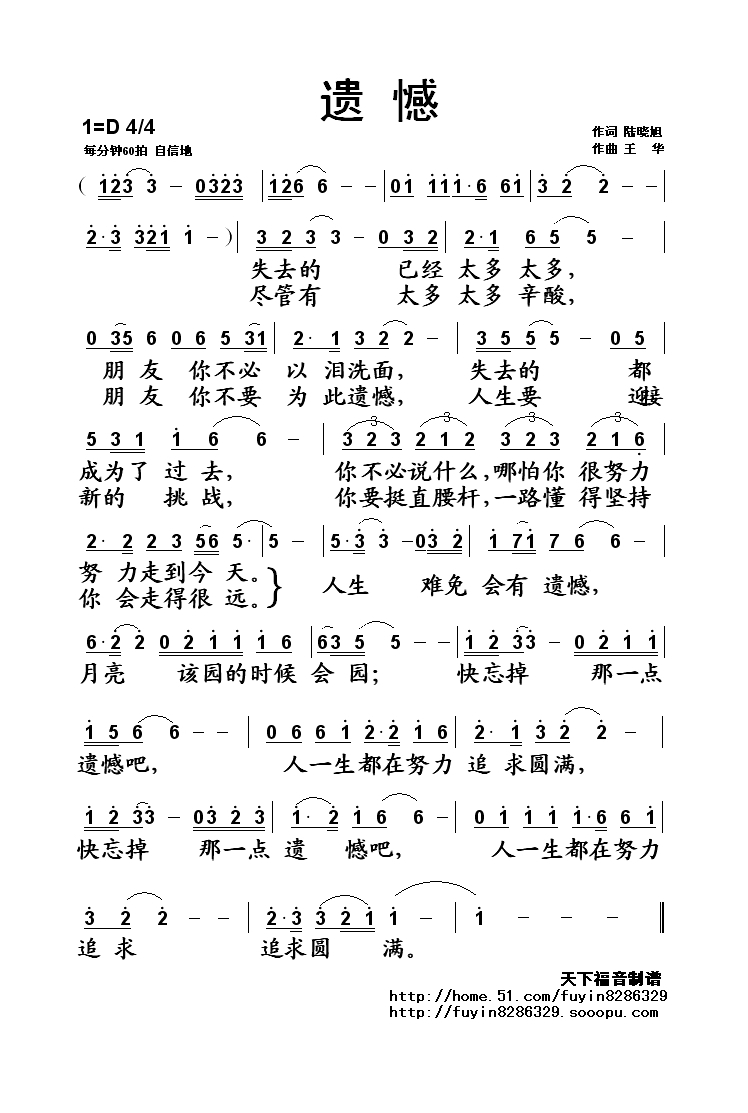 遗 憾
1=D 4/4
每分钟60拍 自信地
作词 陆晓旭
作曲 王 华
( 123 3 – 0323 | 126 6 – – | 01 111·6 61 | 3 2 2 – – |
2·3 321 1 – ) | 3 2 3 3 – 0 3 2 | 2·1 6 5 5 – |
失去的 已经 太多 太多,
尽管有 太多 太多 辛酸,
0 35 6 0 6 5 31 | 2· 1 3 2 2 – | 3 5 5 5 – 0 5 |
朋 友 你不必 以 泪洗面, 失去的 都
朋 友 你不要 为 此遗憾, 人生要 迎接
5 3 1 1 6 6 – | 3 2 3 2 1 2 3 2 3 2 1 6 |
3 3 3 3
成为了 过 去, 你不必说什么,哪怕你 很努力
新的 挑 战, 你要挺直腰杆,一路懂 得坚持
2· 2 2 3 56 5· | 5 – | 5·3 3 – 03 2 | 1 71 7 6 6 – |
努 力走到今 天。 } 人生 难免 会有 遗憾,
你 会走得很 远。
6·2 2 0 2 1 1 1 6 | 63 5 5 – – | 1 2 33 – 0 2 1 1 |
月亮 该园的时候 会 园; 快忘掉 那一点
1 5 6 6 – – | 0 6 6 1 2·2 1 6 | 2· 1 3 2 2 – |
遗憾吧, 人一生都在努力 追 求圆满,
1 2 33 – 03 2 3 | 1· 2 1 6 6 – | 0 1 1 1 1·6 6 1 |
快忘掉 那一点 遗 憾吧, 人一生都在努力
3 2 2 – – | 2·3 3 2 1 1 – | 1 – – – ‖
追 求 追求圆 满。
天下福音制谱
http://home.51.com/fuyin8286329
http://fuyin8286329.sooopu.com